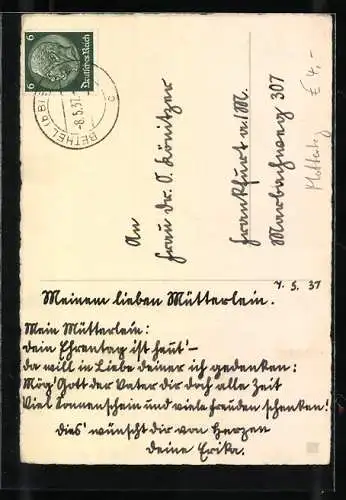 6 6
Deutsches Reich
BETHEL (b BIE
-8.5.37.-
c
An
Frau Dr. O. Könitzer
Frankfurt a/M.
Marbachweg 307
£ 4,-
7.5.37
Meinem lieben Mütterlein.
Mein Mütterlein:
dein Ehrentag ist heut' –
da will in Liebe deiner ich gedenken:
Mög' Gott der Vater dir doch alle Zeit
Viel Sonnenschein und viele Freuden schenken!
Dies' wünscht dir von Herzen
deine Erika.